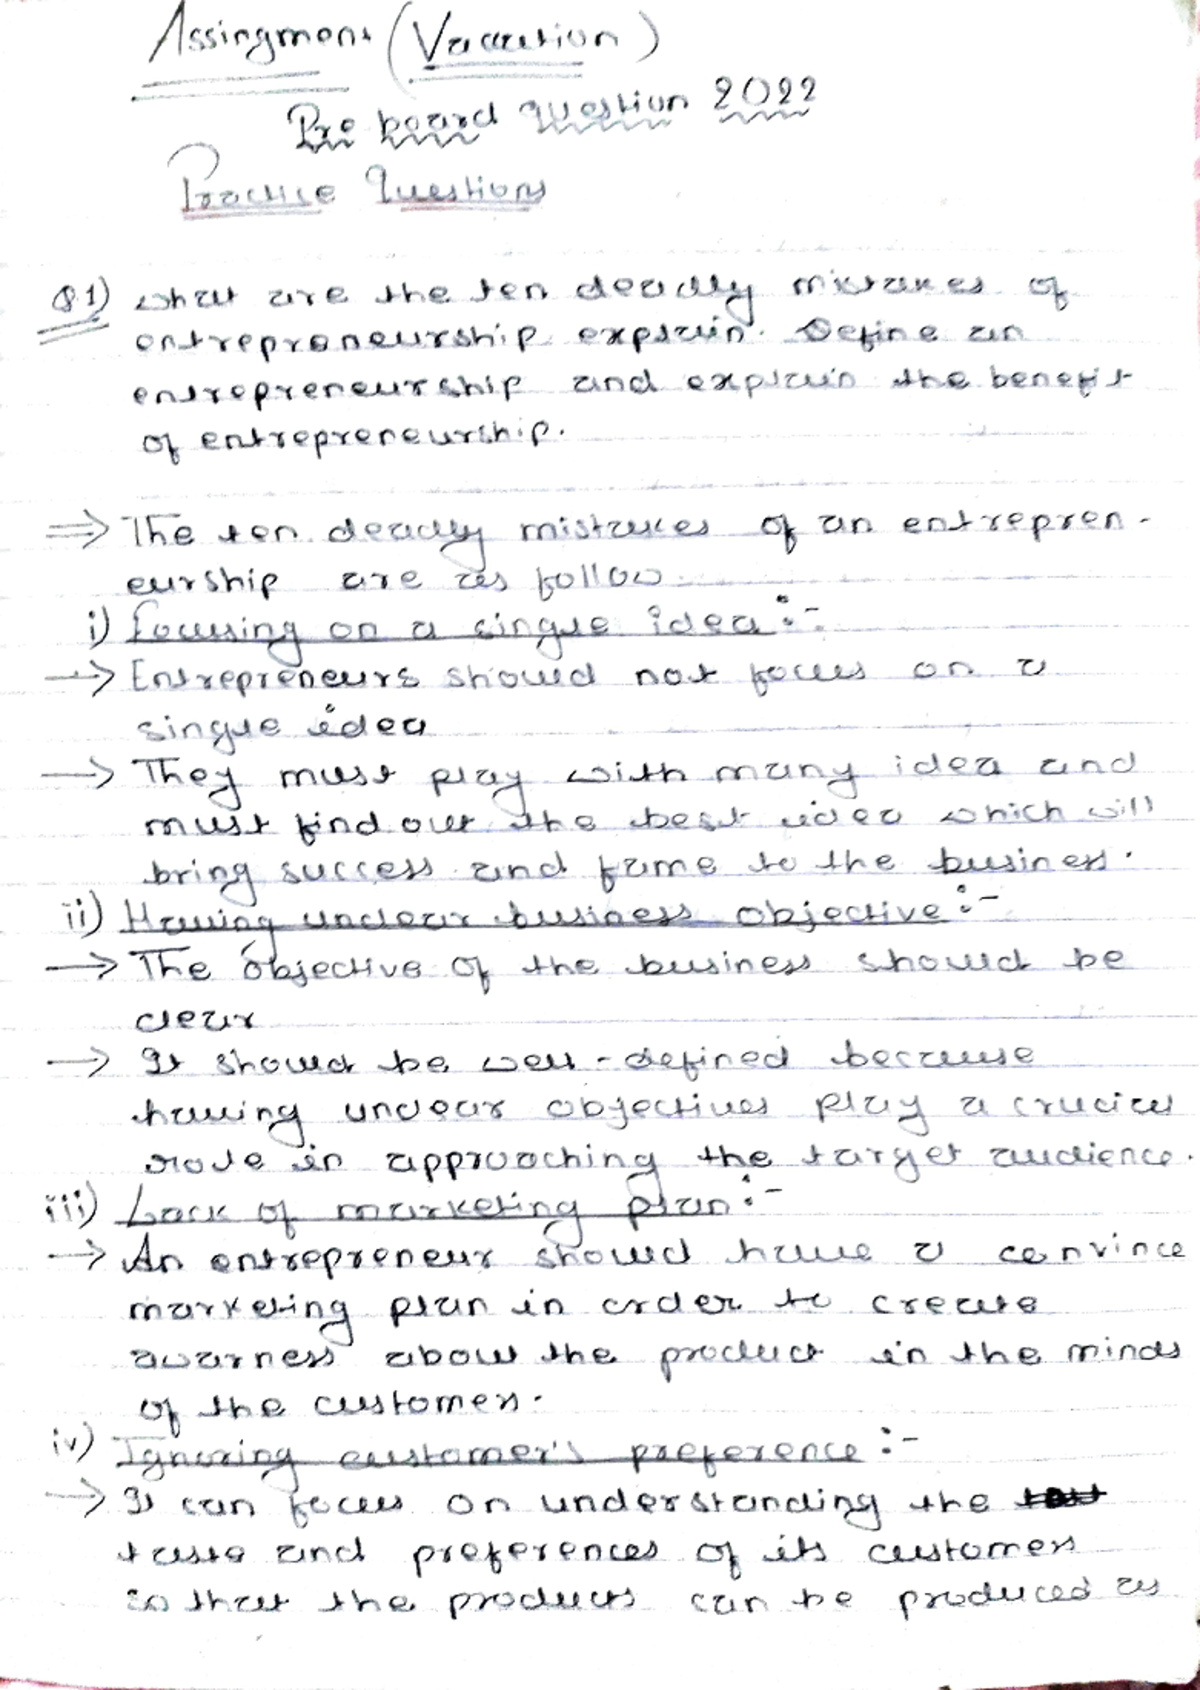 Assingment (Vacation)
Pre board question 2022
Practice Questions
Q1) what are the ten deadly mistakes of
entrepreneurship explain. Define an
entrepreneurship and explain the benefit
of entrepreneurship.
⇒ The ten deadly mistakes of an entrepren-
eurship are as follow
i) Focusing on a single idea:-
→ Entrepreneurs should not focus on a
single idea
→ They must play with many idea and
must find out the best idea which will
bring success and fame to the business.
ii) Having unclear business objective:-
→ The objective of the business should be
clear
→ It should be well-defined because
having unclear objectives play a crucial
role in approaching the target audience.
iii) Lack of marketing plan:-
→ An entrepreneur should have a convince
marketing plan in order to create
awarness about the product in the minds
of the customers.
iv) Ignoring customer's preference:-
→ It can focus on understanding the
taste and preferences of its customers
so that the products can be produced as